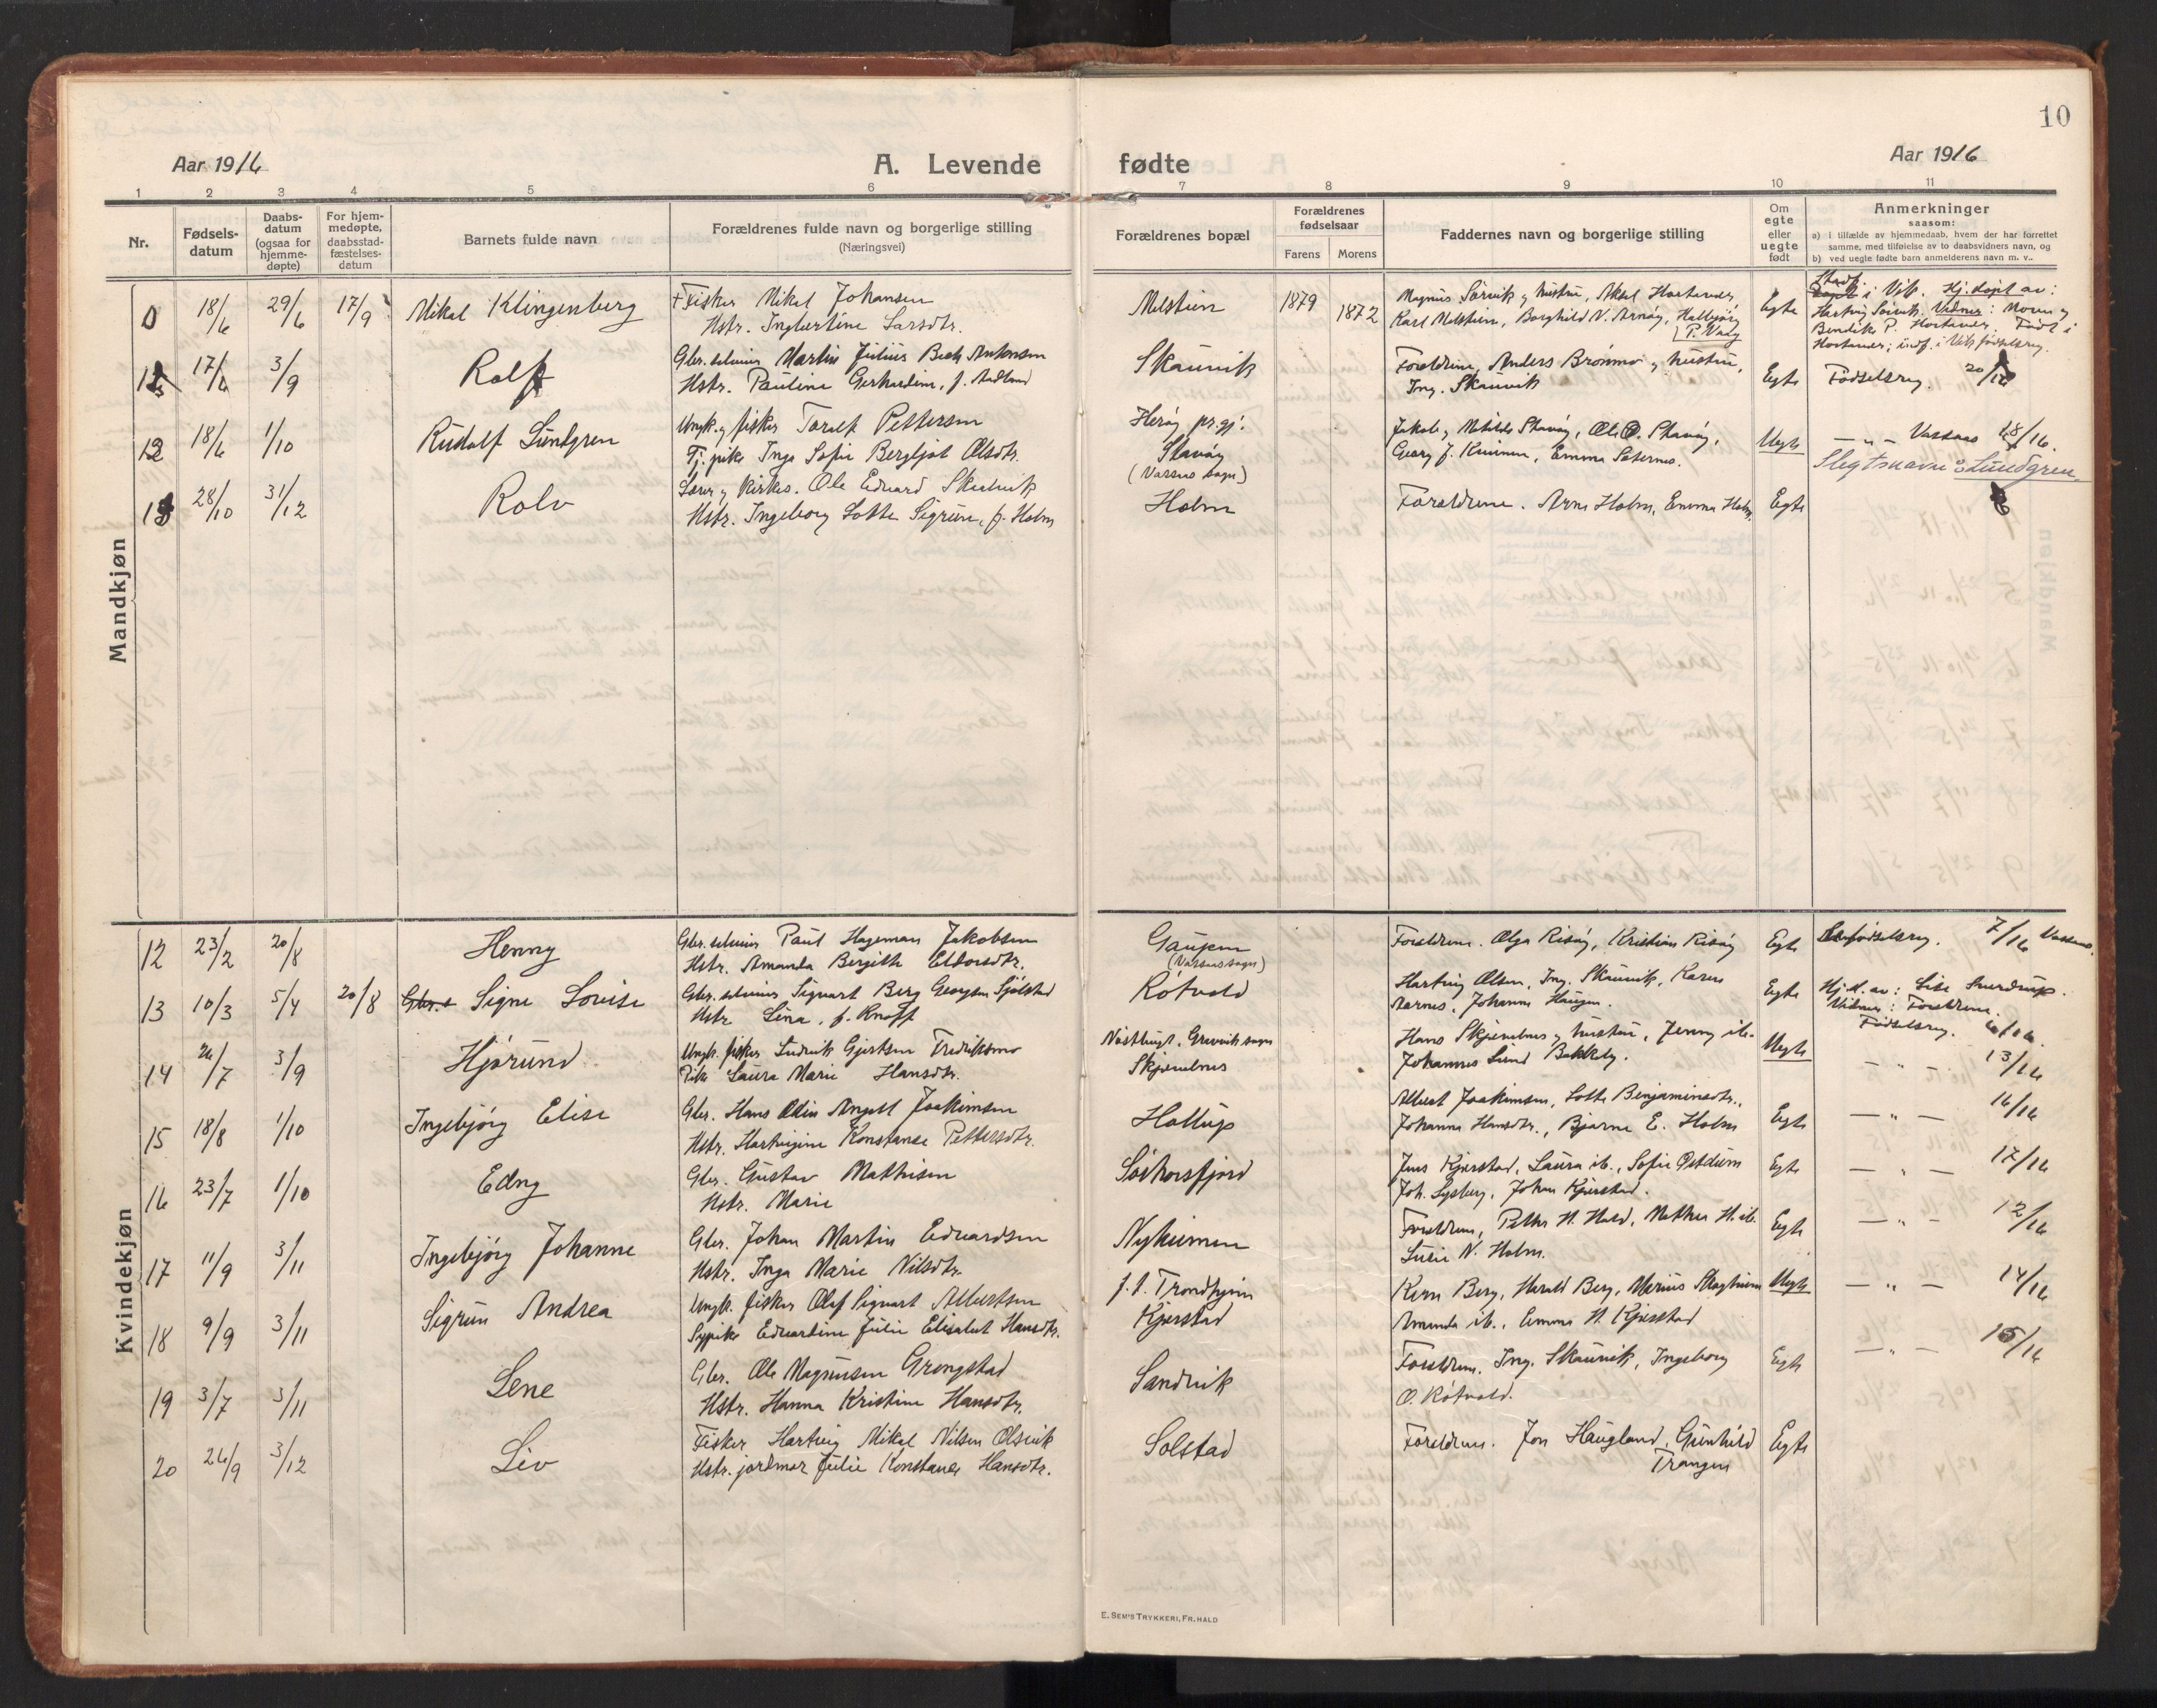 10
Aar 1916
A. Levende fødte
Aar 1916
1 2 3 4 5 6 7 8 9 10 11
Nr.
Fødsels-
datum
Daabs-
datum
(ogsaa for
hjemme-
døpte)
For hjem-
medøpte,
daabsstad-
fæstelses-
datum
Barnets fulde navn
Forældrenes fulde navn og borgerlige stilling
(Næringsvei)
Forældrenes bopæl
Forældrenes
fødselsaar
Farens Morens
Faddernes navn og borgerlige stilling
Om
egte
eller
uegte
født
Anmerkninger
saasom:
a) i tilfælde av hjemmedaab, hvem der har forrettet
samme, med tilføielse av to daabsvidners navn, og
b) ved uegte fødte barn anmelderens navn m. v..
Mandkjøn
18/6 29/6 17/9 Mikal Klingenberg
Fisker Mikal Johansen
Hstr. Ingbertine Larsdtr.
Melstien 1879 1872
Magnus Sørvik og hustru, Aksel Hortavær,
Karl Melstien, Borghild N. Arnøy, Halbjørg
P. Vaag
Egte
Stadf. i Vib. Hj. døpt av:
Hartvig Sørvik. Vidner: Moren og
Bendik P. Hortavær. Født i
Hortavær; indf. i Vib. fødselsreg.
17/6 3/9 Rolf
Gbr. selveier Martin Julius Bech Antonsen
Hstr. Pauline Gerhardine, f. Aadland
Skaunvik
Forældrene, Anders Brønmo og hustru,
Ing. Skaunvik
Egte
Fødselsreg.
12 18/6 1/10 Rudolf Lundgren
Ungk. og fisker Toralf Pettersen
Tj. pike Inga Sofie Bergljot Olsdtr.
Herøy pr.gj.
Stavøy
(Vassaas sogn)
Jakob og Matilde Stavøy, Ole O. Stavøy,
Georg J. Emma
Uegte
— „ — Vassaas 18/16.
Slegtsnavn: Lundgren.
13 28/10 31/12 Rolv
Lærer og kirkes. Ole Edvard Skedsvik
Hstr. Ingeborg Lotte Sigrun, f. Holm
Holm
Forældrene. Arne Holm, Emma Holm.
Egte
Kvindekjøn
12 23/2 20/8 Henny
Gbr. selveier Paul Hageman Jakobsen
Hstr. Amanda Bergitte Eldorsdtr.
Gaupen
(Vassaas sogn)
Forældrene. Olga Risøy, Kristian Risøy
Egte
Fødselsreg. 7/16 Vassaas.
13 10/3 5/4 20/8 Signe Lovise
Gbr. selveier Sigvart Berg Georgsen Sjølstad
Hstr. Lina, f. Knoff
Røtvold
Hartvig Olsen, Ing. Skaunvik, Karen
Aarnes, Johanna Haugen.
Egte
Hj. d. av: Lise Sverdrup.
Vidner: Forældrene.
Fødselsreg. 6/16.
14 26/7 3/9 Hjørund
Ungk. fisker Ludvik Gjertsen Fredriksmo
Pike Laura Marie Hansdtr.
Skjevelnes
Hans Skjevelnes og hustru, Jenny ib.
Johannes Lund Bakkely.
Uegte
— „ — 13/16
15 18/8 1/10 Ingebjørg Elise
Gbr. Hans Odin Angell Joakimsen
Hstr. Hartvigine Konstanse Pettersdtr.
Holtup
Albert Joakimsen, Lotte Benjaminsdtr.,
Johanna Hansdtr., Bjarne E. Holm
Egte
— „ — 16/16
16 23/7 1/10 Edny
Gbr. Gustav Mathisen
Hstr. Marie
Sørhorsfjord
Jens Kjærstad, Laura ib., Sofie Østdum
Joh. Lysberg, Johan Kjærstad.
Egte
— „ — 17/16
17 11/9 3/11 Ingebjørg Johanne
Gbr. Johan Martin Edvardsen
Hstr. Inga Marie Nilsdtr.
Nyheimen
Forældrene, Petter H. Hald, Mathea H. ib.
Lucie N. Holm.
Egte
— „ — 12/16
18 9/9 3/11 Sigrun Andrea
Ungk. fisker Olaf Sigvart Albertsen
Sypike Edvardine Julie Elisabet Hansdtr.
f. t. Trondhjem
Kjærstad
Kern Berg, Harald Berg, Marius
Amanda ib., Emma H. Kjærstad
Uegte
— „ — 14/16
19 3/7 3/11 Lene
Gbr. Ole Magnusen Grongstad
Hstr. Hanna Kristine Hansdtr.
Sandvik
Forældrene. Ing. Skaunvik, Ingeborg
O. Røtvold.
Egte
— „ — 15/16
20 26/9 3/12 Liv
Fisker Hartvig Mikal Nilsen Olsvik
Hstr. jordmor Julie Konstanse Hansdtr.
Solstad
Forældrene. Jon Haugland, Gunhild
Trangen
Egte
E. SEM'S TRYKKERI, FR. HALD